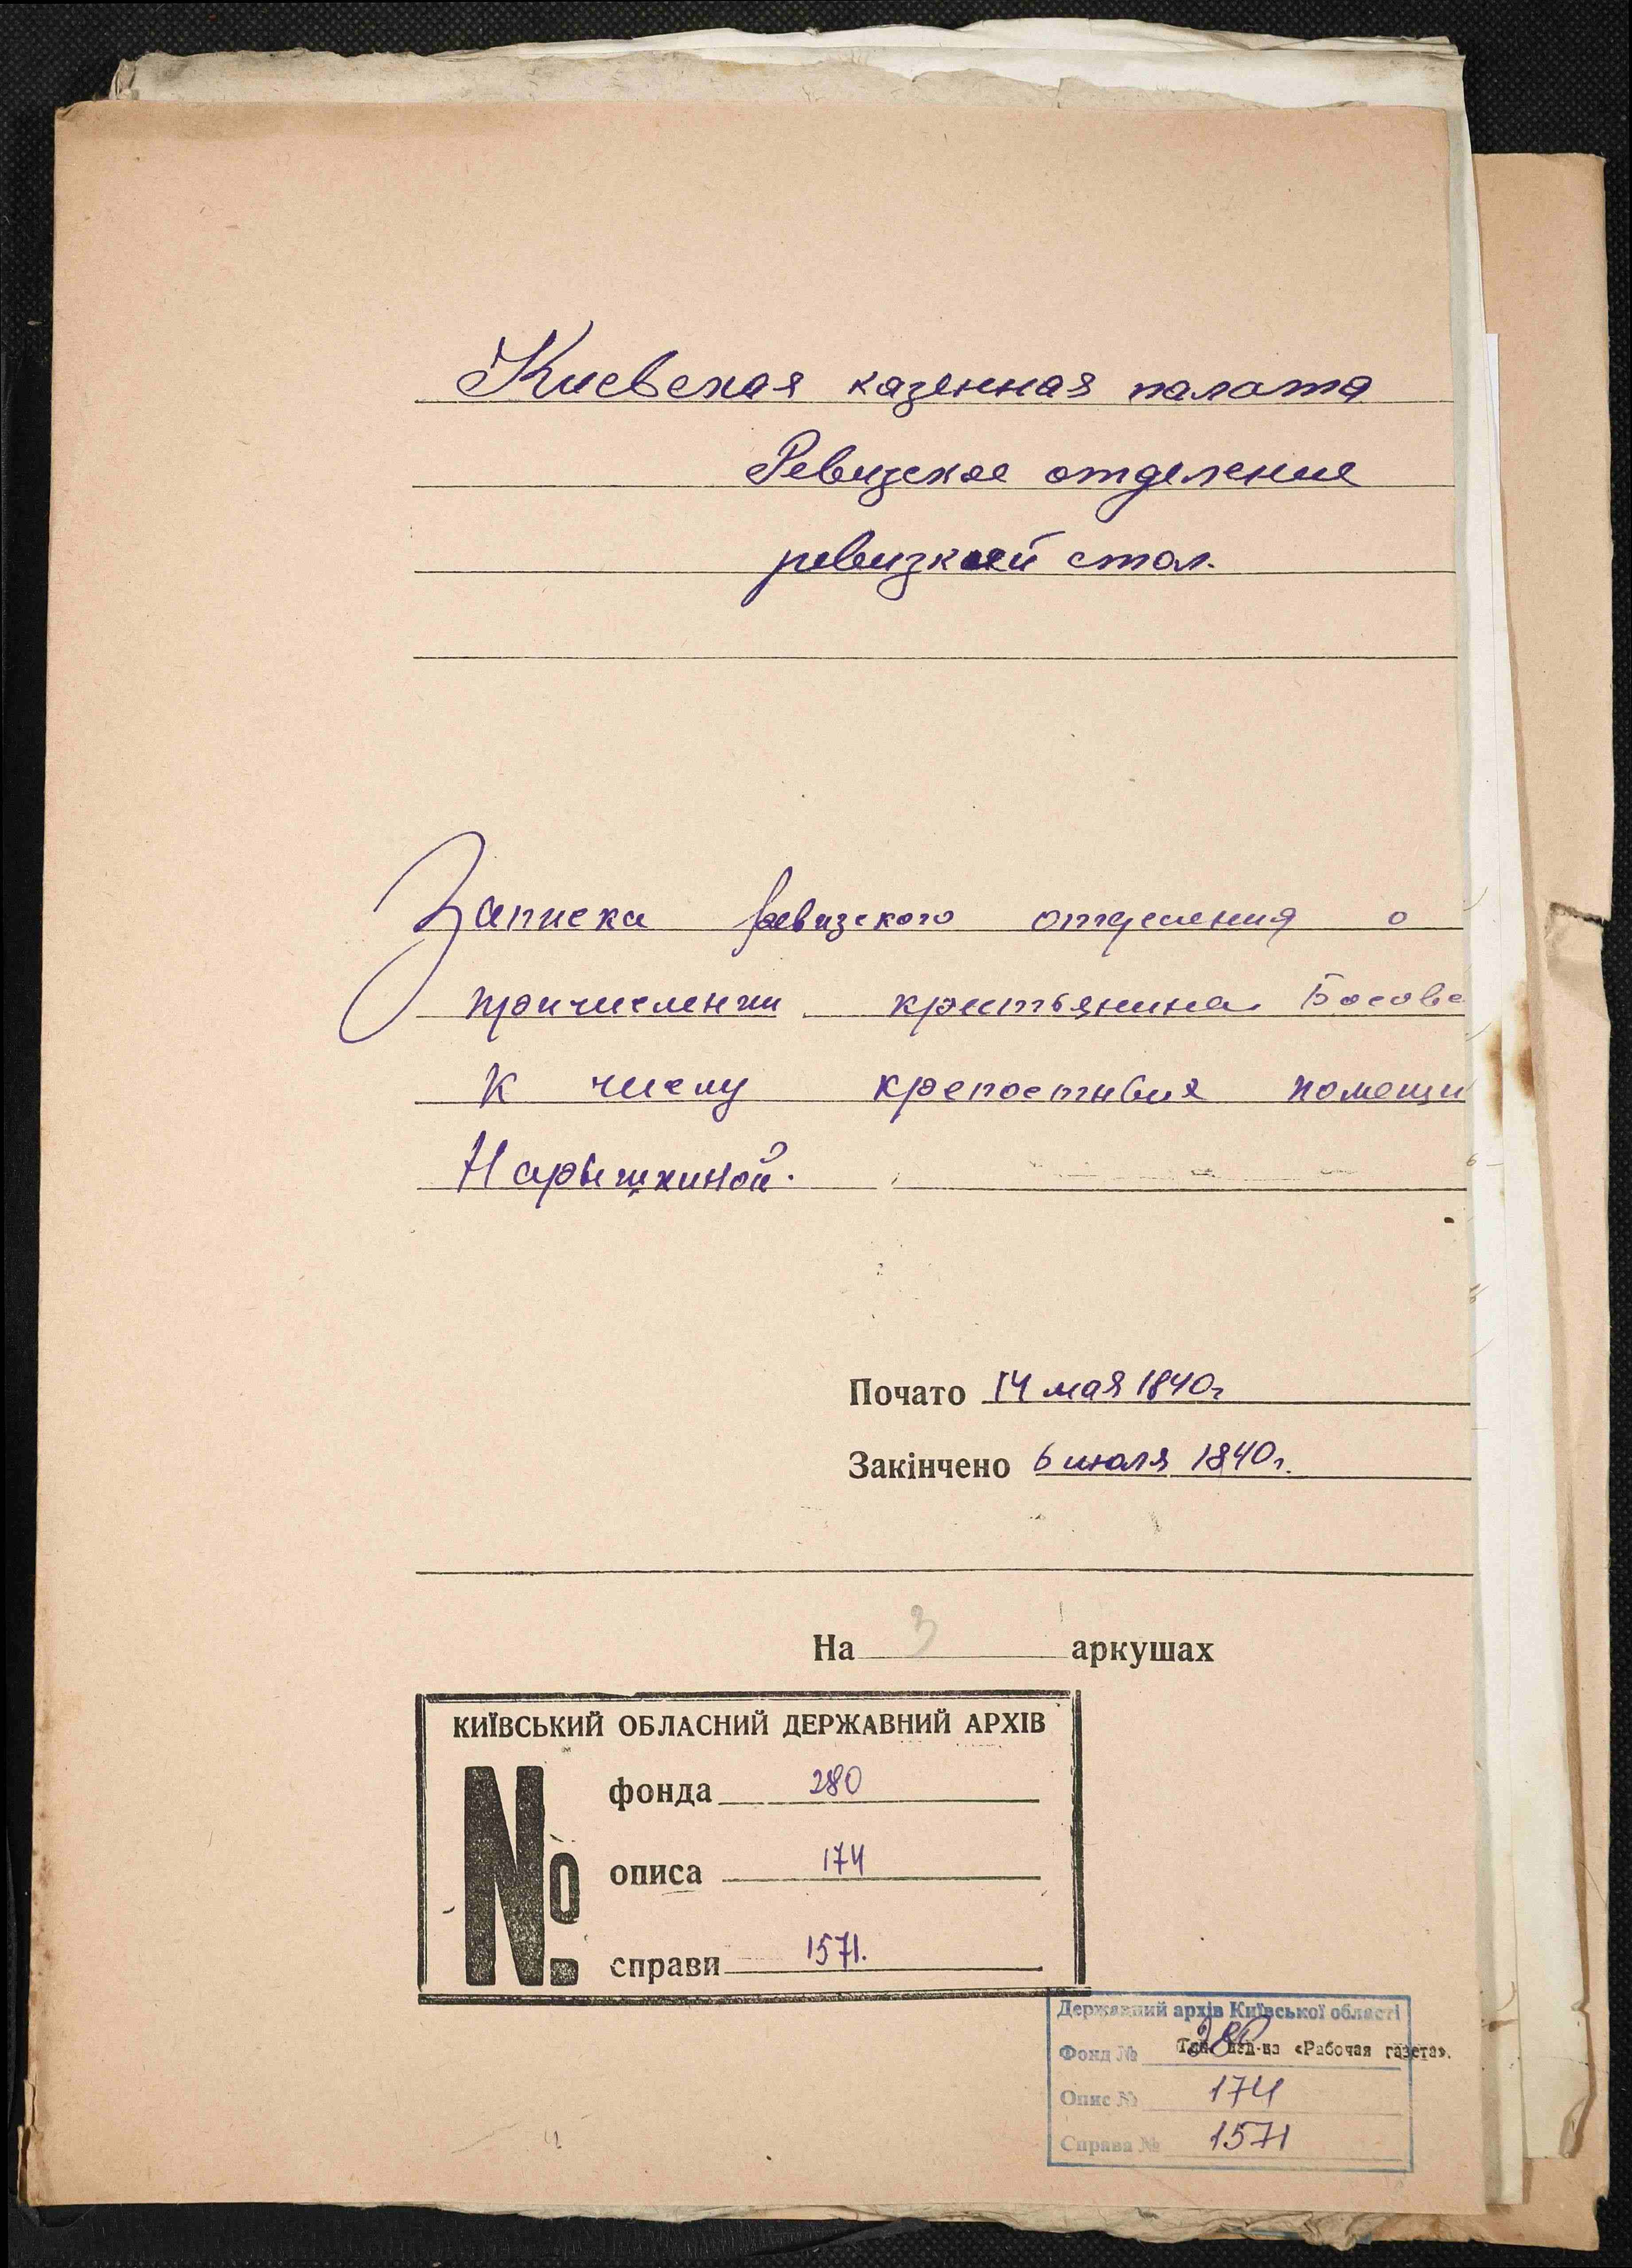 Киевская казенная палата
Ревизское отделение
ревизкий стол.
Записка ревизского отделения о
причислении крестьянина Босова
к числу крепостных помещи
Нарышкиной.
Почато 14 мая 1840г
Закінчено 6 июля 1840г.
На 3 аркушах
КИЇВСЬКИЙ ОБЛАСНИЙ ДЕРЖАВНИЙ АРХІВ
№
фонда 280
описа 174
справи 1571.
Державний архів Київської області
Фонд № 280
изд-во «Рабочая газета».
Опис № 174
Справа № 1571